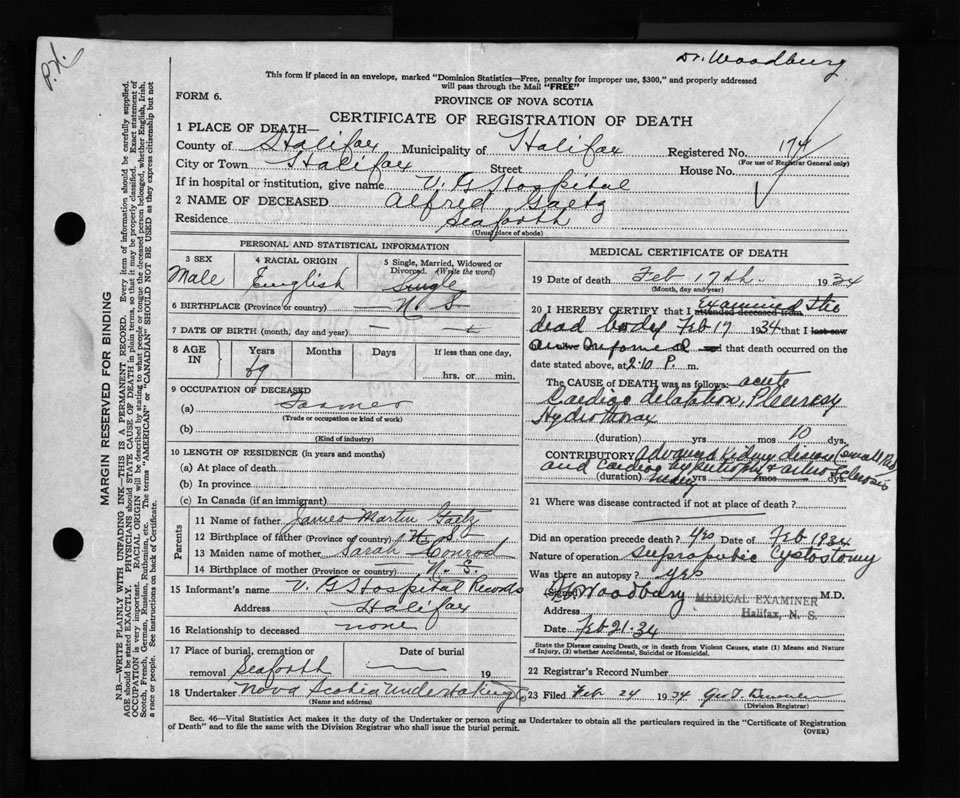 P.X.
Dr. Woodbury
This form if placed in an envelope, marked "Dominion Statistics—Free, penalty for improper use, $300," and properly addressed
will pass through the Mail "FREE"
FORM 6.
PROVINCE OF NOVA SCOTIA
CERTIFICATE OF REGISTRATION OF DEATH
1 PLACE OF DEATH—
County of Halifax Municipality of Halifax Registered No. 174
(For use of Registrar General only)
City or Town Halifax Street House No.
If in hospital or institution, give name V. G Hospital
2 NAME OF DECEASED Alfred Gaetz
Residence Seaforth
(Usual place of abode)
PERSONAL AND STATISTICAL INFORMATION
3 SEX
Male
4 RACIAL ORIGIN
English
5 Single, Married, Widowed or Divorced. (Write the word)
Single
6 BIRTHPLACE (Province or country) N. S
7 DATE OF BIRTH (month, day and year) — —
8 AGE IN
Years Months Days If less than one day,
69 hrs. or min.
9 OCCUPATION OF DECEASED
(a) Farmer
(Trade or occupation or kind of work)
(b)
(Kind of industry)
10 LENGTH OF RESIDENCE (in years and months)
(a) At place of death
(b) In province
(c) In Canada (if an immigrant)
Parents
11 Name of father James Martin Gaetz
12 Birthplace of father (Province or country) N. S
13 Maiden name of mother Sarah Conrod
14 Birthplace of mother (Province or country) N. S.
15 Informant's name V. G Hospital Records
Address Halifax
16 Relationship to deceased none
17 Place of burial, cremation or removal Seaforth
Date of burial — 19
18 Undertaker Nova Scotia Undertaking Co
(Name and address)
MEDICAL CERTIFICATE OF DEATH
19 Date of death Feb 17th. 1934
(Month, day and year)
20 I HEREBY CERTIFY that I attended deceased from Examined the
dead body Feb 17 1934 that I last saw
informed and that death occurred on the
date stated above, at 2.10 P. m.
The CAUSE OF DEATH was as follows: acute
Cardiac dilation, Pleurisy
Hydrothorax
(duration) yrs mos 10 dys.
CONTRIBUTORY Advanced Kidney disease (small Red
and Cardiac hypertrophy & arterio Sclerosis
(duration) many yrs mos dys.
21 Where was disease contracted if not at place of death?
Did an operation precede death? yes Date of Feb 1934
Nature of operation suprapubic Cystostomy
Was there an autopsy? yes
(Signed) Woodbury MEDICAL EXAMINER M.D.
Address Halifax, N. S.
Date Feb 21-34
State the Disease causing Death, or in death from Violent Causes, state (1) Means and Nature of Injury, (2) whether Accidental, Suicidal or Homicidal.
22 Registrar's Record Number
23 Filed Feb 24 1934 Geo
(Division Registrar)
Sec. 46—Vital Statistics Act makes it the duty of the Undertaker or person acting as Undertaker to obtain all the particulars required in the "Certificate of Registration
of Death" and to file the same with the Division Registrar who shall issue the burial permit.
(OVER)
MARGIN RESERVED FOR BINDING
N.B.—WRITE PLAINLY WITH UNFADING INK—THIS IS A PERMANENT RECORD. Every item of information should be carefully supplied.
AGE should be stated EXACTLY. PHYSICIANS should STATE CAUSE OF DEATH in plain terms, so that it may be properly classified. Exact statement of
OCCUPATION is very important. RACIAL ORIGIN will be described by stating to what people or tongue the deceased person belonged, whether English, Irish,
Scotch, French, German, Russian, Ruthenian, etc. The terms "AMERICAN" or "CANADIAN" SHOULD NOT BE USED as they express citizenship but not
a race or people. See instructions on back of Certificate.